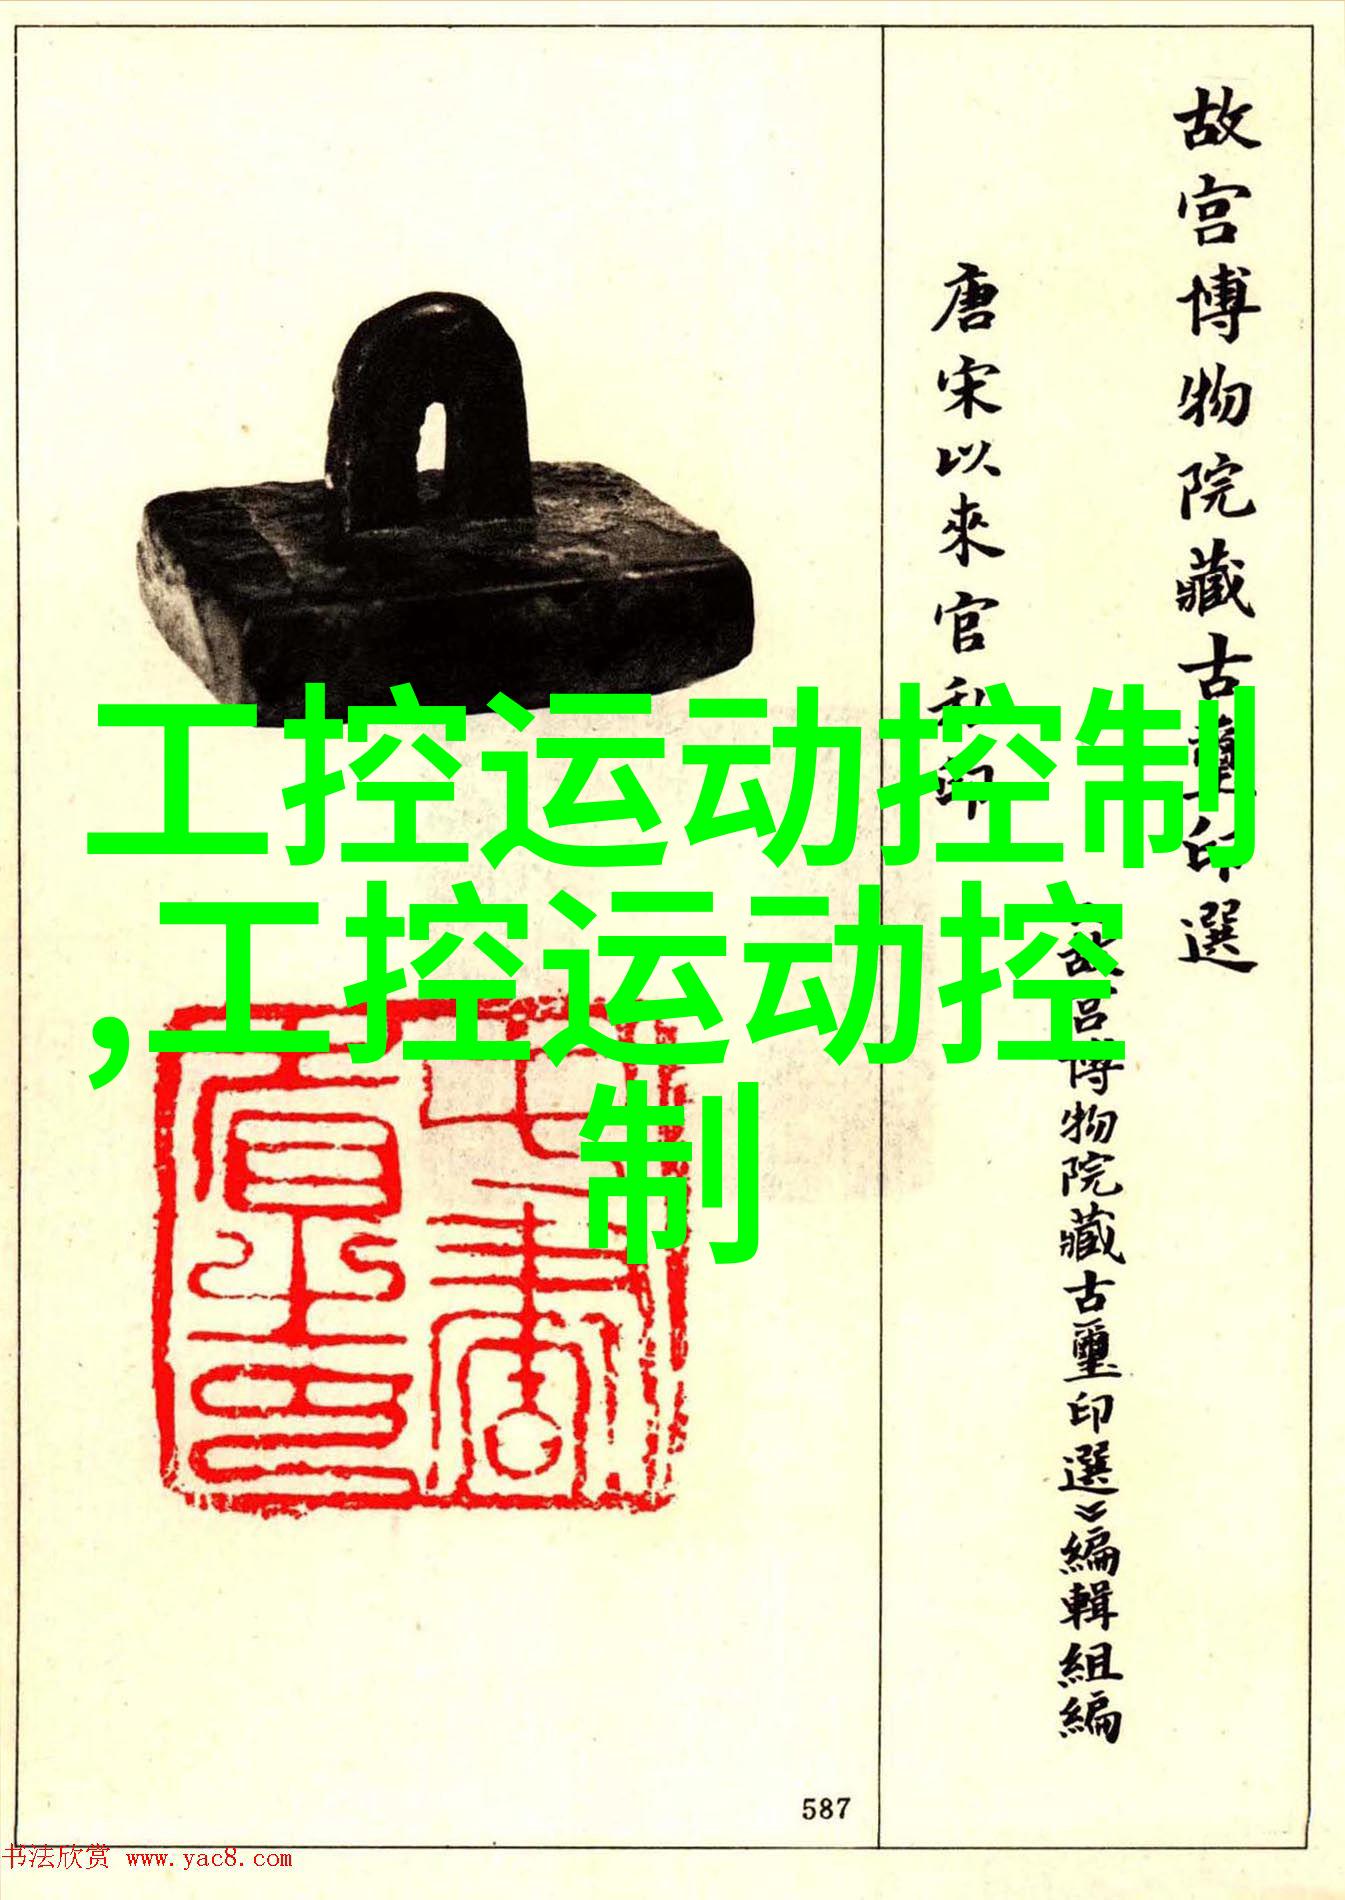 故宫博物院藏古璽印選
《故宫博物院藏古璽印選》編輯組編
唐宋以來官私印
工控运动控制
,工控运动控
制
587
书法欣赏 www.yac8.com